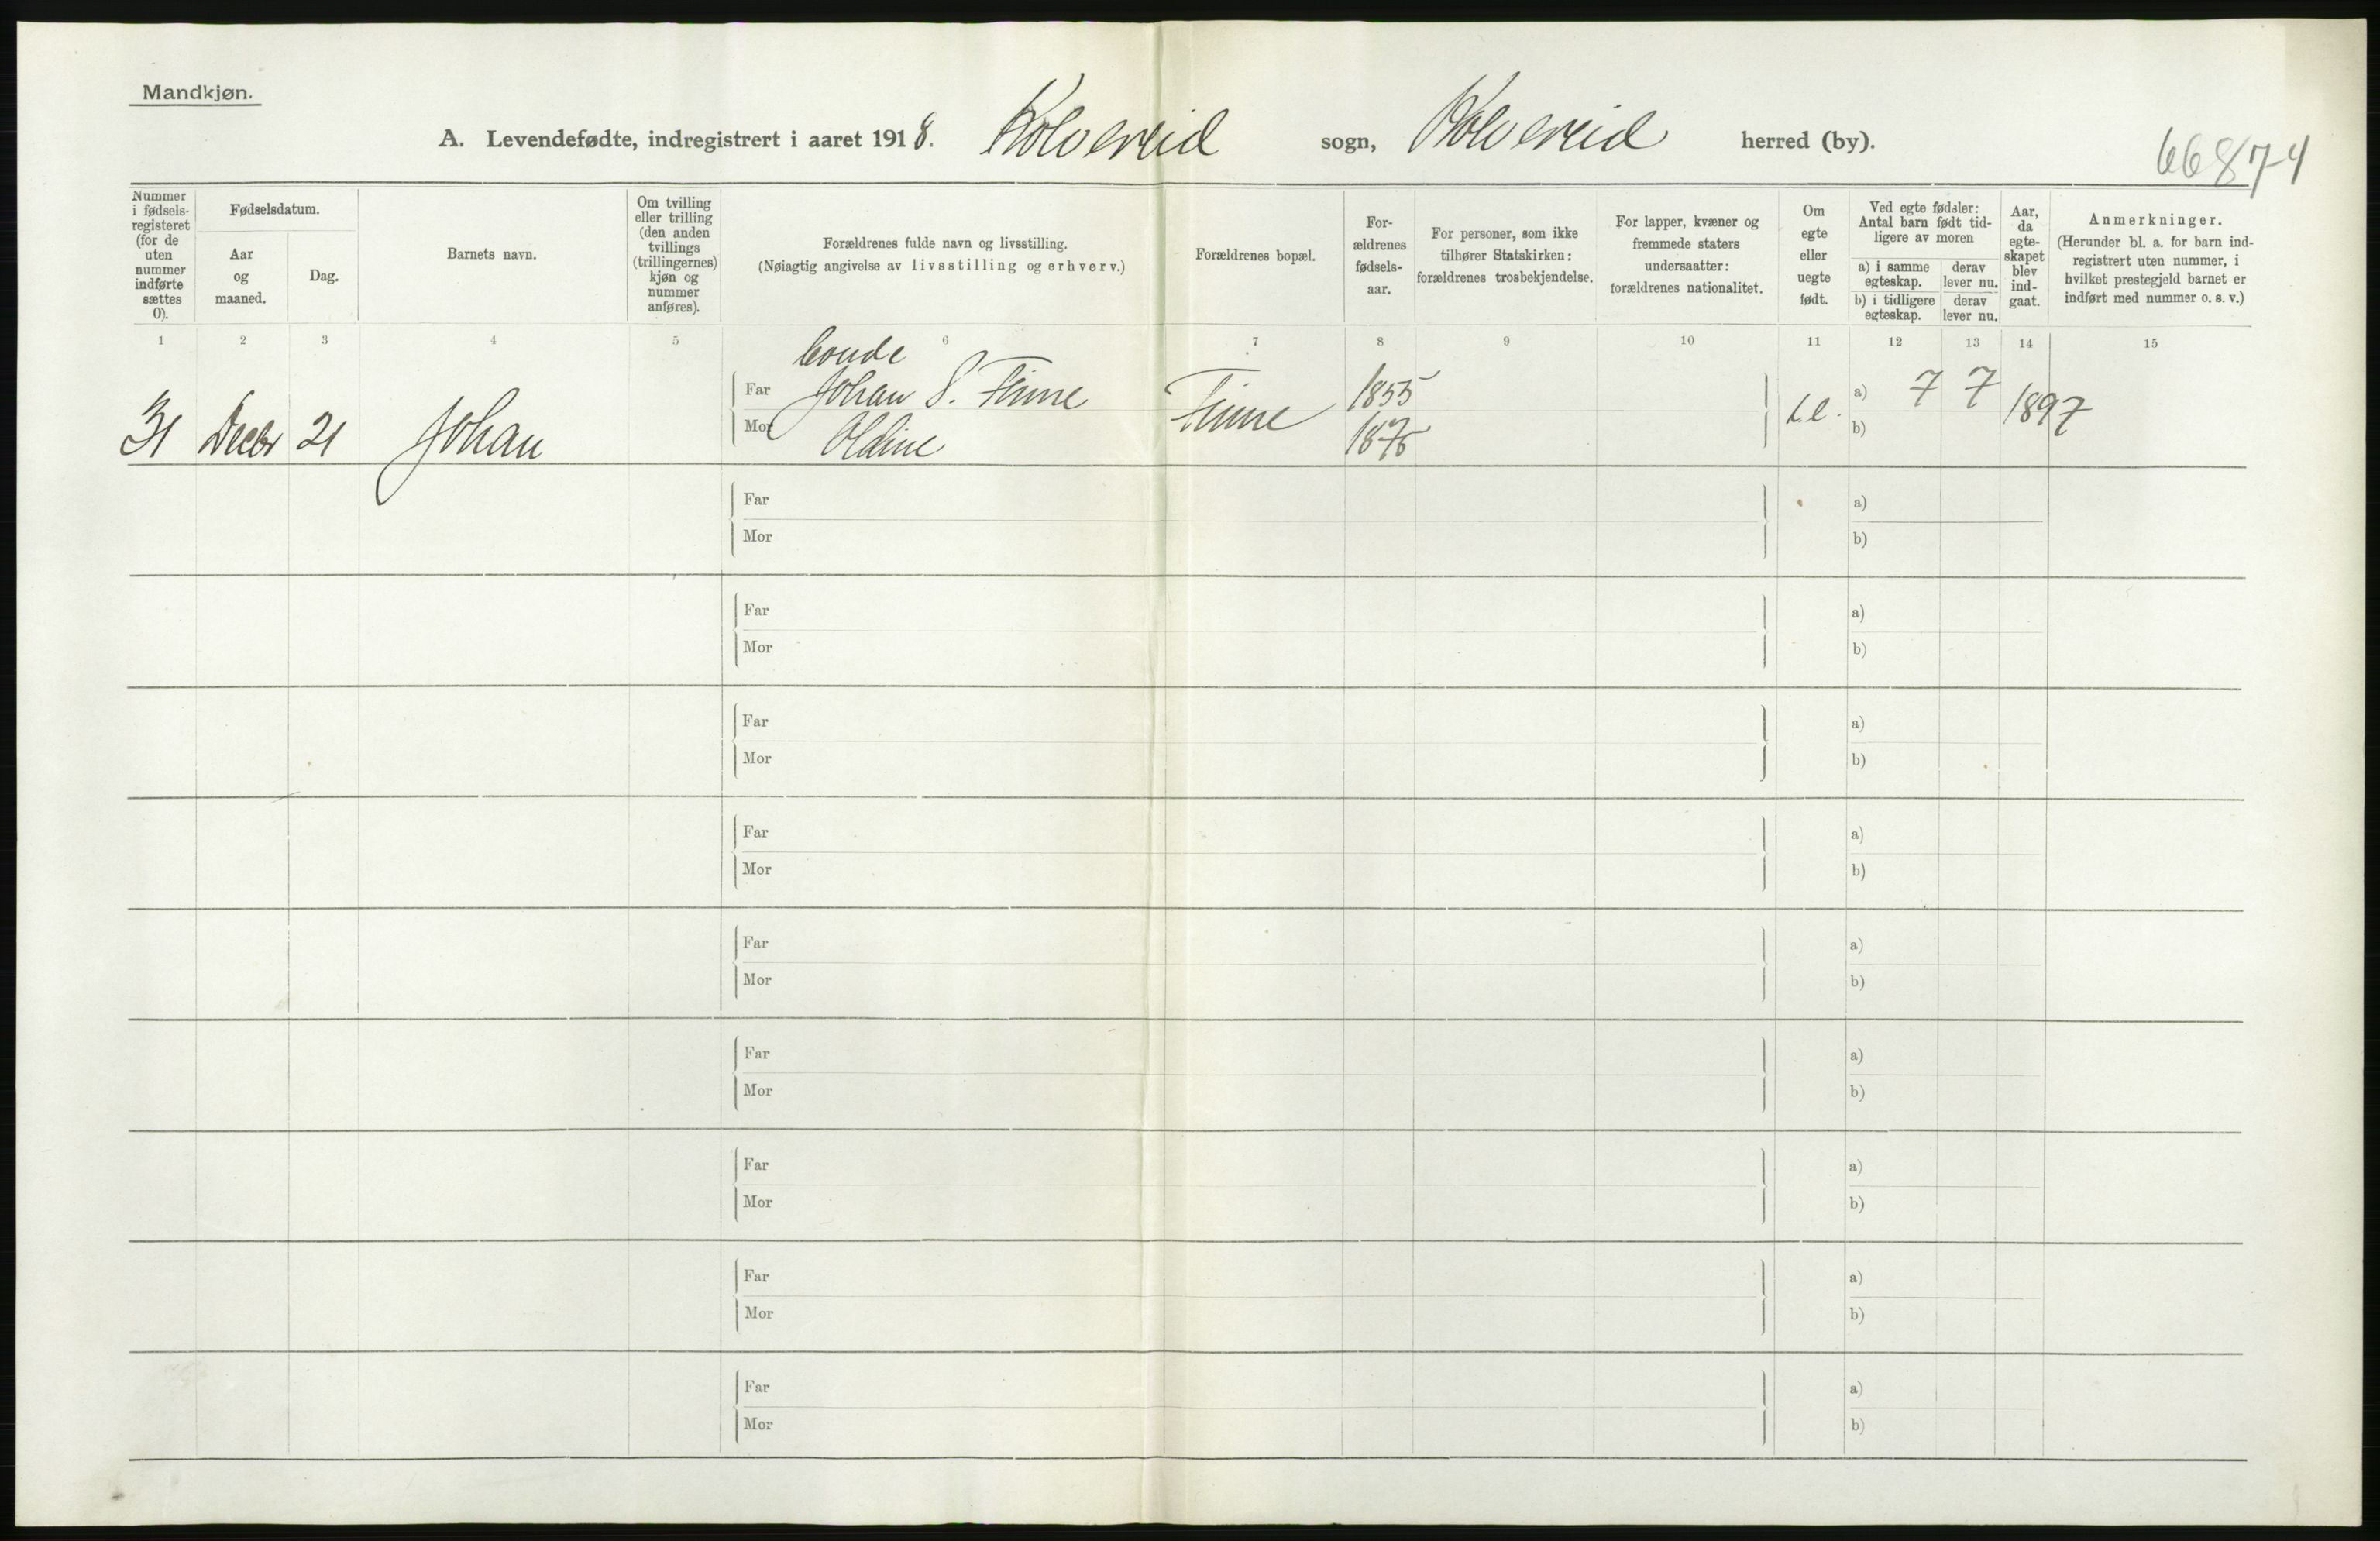 Mandkjøn.
A. Levendefødte, indregistrert i aaret 1918. Kolvereid sogn, Kolvereid herred (by).
66874
Nummer i fødsels-registeret (for de uten nummer indførte sættes 0).
Fødselsdatum.
Aar og maaned.
Dag.
Barnets navn.
Om tvilling eller trilling (den anden tvillings (trillingernes) kjøn og nummer anføres).
Forældrenes fulde navn og livsstilling.
(Nøiagtig angivelse av livsstilling og erhverv.)
Forældrenes bopæl.
For-ældrenes fødsels-aar.
For personer, som ikke tilhører Statskirken: forældrenes trosbekjendelse.
For lapper, kvæner og fremmede staters undersaatter: forældrenes nationalitet.
Om egte eller uegte født.
Ved egte fødsler: Antal barn født tid-ligere av moren
a) i samme egteskap.
derav lever nu.
b) i tidligere egteskap.
derav lever nu.
Aar, da egte-skapet blev ind-gaat.
Anmerkninger.
(Herunder bl. a. for barn ind-registrert uten nummer, i hvilket prestegjeld barnet er indført med nummer o. s. v.)
1 2 3 4 5 6 7 8 9 10 11 12 13 14 15
bonde
Far Johan S. Finne Finne 1855 a) 7 7 1897
31 Decbr 21 Johan Mor Oldine 1875 b)
Far a)
Mor b)
Far a)
Mor b)
Far a)
Mor b)
Far a)
Mor b)
Far a)
Mor b)
Far a)
Mor b)
Far a)
Mor b)
Far a)
Mor b)
Far a)
Mor b)